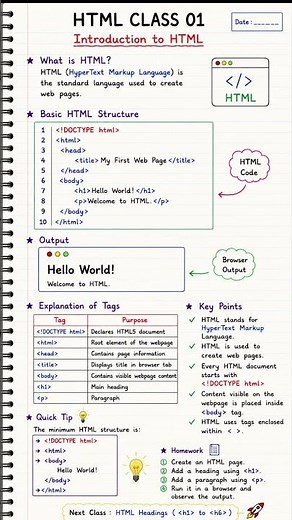 HTML CLASS 01
Date : _ _ _ _ _
Introduction to HTML
What is HTML?
HTML (HyperText Markup Language) is
the standard language used to create
web pages.
</>
HTML
Basic HTML Structure
1 <!DOCTYPE html>
2 <html>
3 <head>
4 <title> My First Web Page </title>
5 </head>
6 <body>
7 <h1>Hello World! </h1>
8 <p>Welcome to HTML.</p>
9 </body>
10 </html>
HTML
Code
Output
Hello World!
Welcome to HTML.
Browser
Output
Explanation of Tags
Tag Purpose
<!DOCTYPE html> Declares HTML5 document
<html> Root element of the webpage
<head> Contains page information
<title> Displays title in browser tab
<body> Contains visible webpage content
<h1> Main heading
<p> Paragraph
Key Points
✓ HTML stands for
HyperText Markup
Language.
✓ HTML is used to
create web pages.
✓ Every HTML document
starts with
<!DOCTYPE html>
✓ Content visible on the
webpage is placed inside
<body> tag.
✓ HTML uses tags enclosed
within < >.
Quick Tip
The minimum HTML structure is:
→ <!DOCTYPE html>
→ <html>
→ <body>
Hello World!
</body>
→</html>
Homework
1 Create an HTML page.
2 Add a heading using <h1>.
3 Add a paragraph using <p>.
4 Run it in a browser and
observe the output.
Next Class : HTML Headings ( <h1> to <h6> )